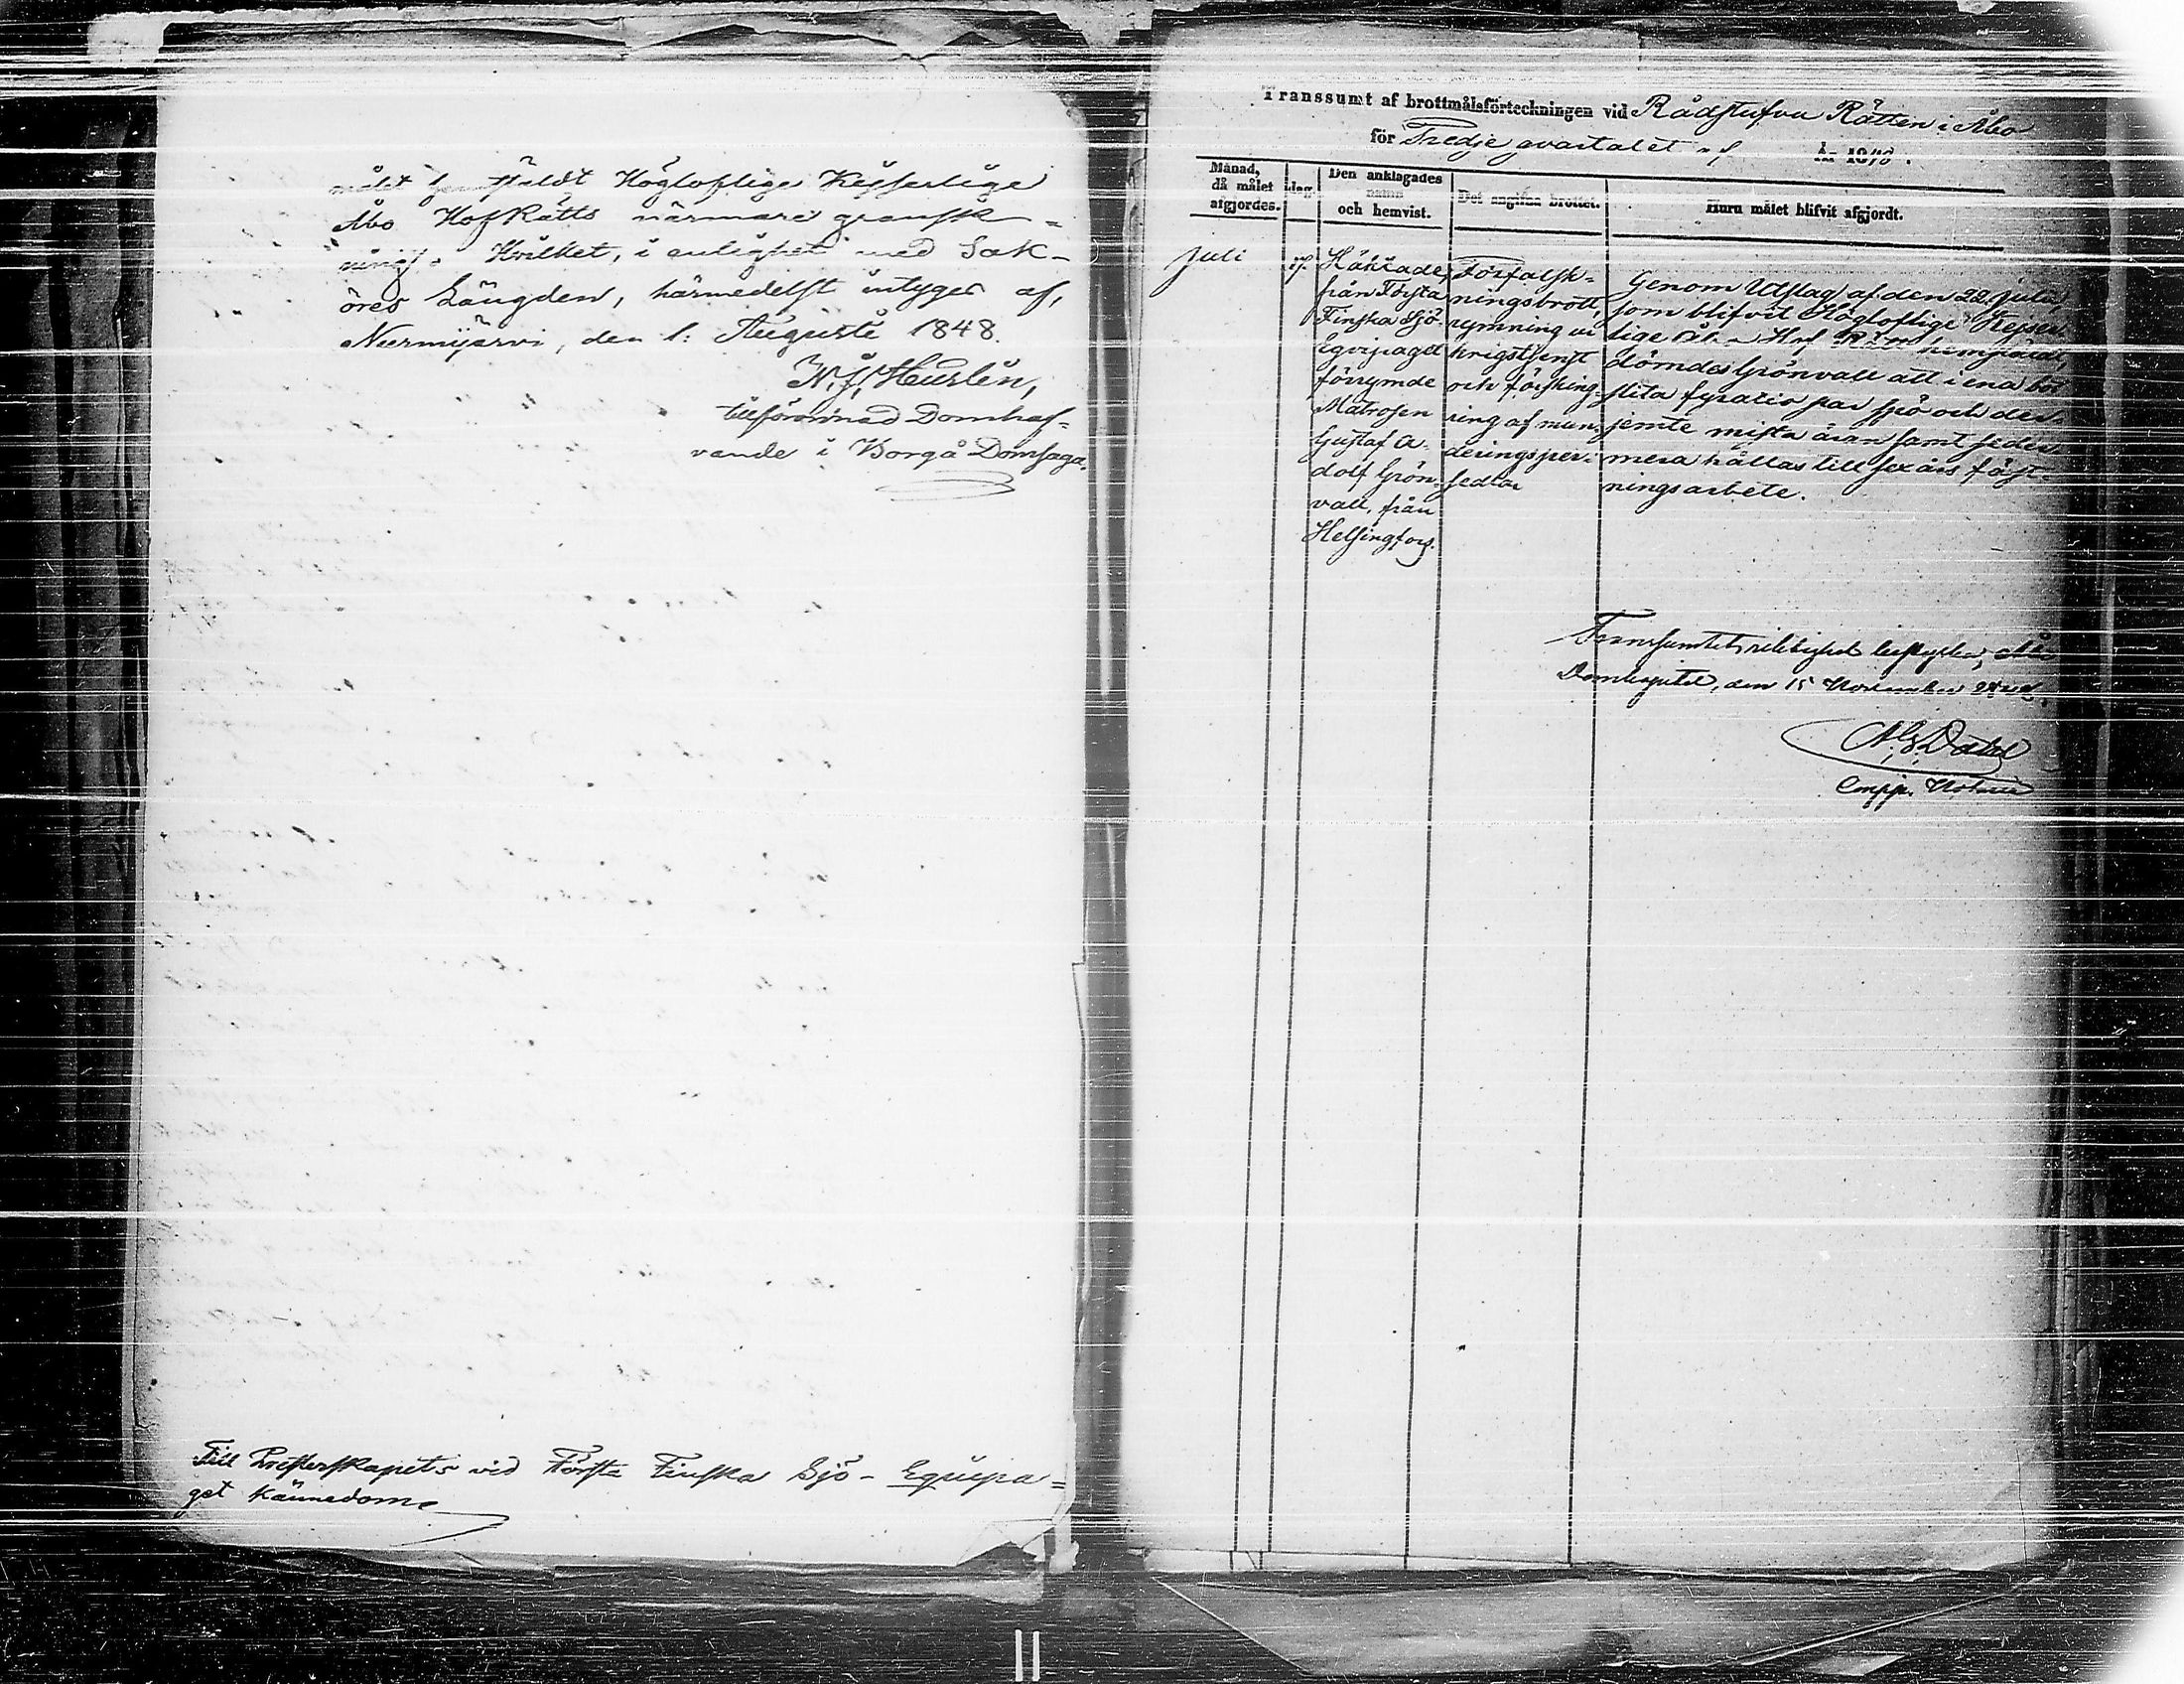 målet hemstäldt Högloflige Kejserlige
Åbo HofRätts närmare gransk=
ning. Hvilket, i enlighet med Sak-
öres Längden, härmedelst intygas af,
Nurmijärvi, den 1: Augusti 1848.
tillförordnad Domhaf=
vande i Borgå Domsaga.
Till Presterskapets vid Första Finska Sjö-Equipa=
get kännedom.
Transsumt af brottmålsförteckningen vid Rådstufvu Rätten i Åbo
för Tredje qvartalet af år 1848.
Månad, då målet afgjordes.
dag.
Den anklagades namn och hemvist.
Det angifna brottet.
Huru målet blifvit afgjordt.
Juli
17.
Häktade,
från Första
Finska Sjö
Eqvipaget
förrymde
Matrosen
Gustaf A-
dolf Grön-
vall, från
Helsingfors.
Förfalsk-
ningsbrott,
rymning ur
krigstjenst
och försking-
ring af mun-
deringsper-
sedlar
Genom Utslag af den 22 Julii,
som blifvit Högloflige Kejser
lige Åbo Hof Rätt hemstäldt,
dömdes Grönvall att i ena bot
slita fyratio par spö och der-
jemte mista äran samt seder-
mera hållas till sex års fäst-
ningsarbete.
Transsumtets riktighet bestyrker, Åbo
Domkapitel, den 15 November